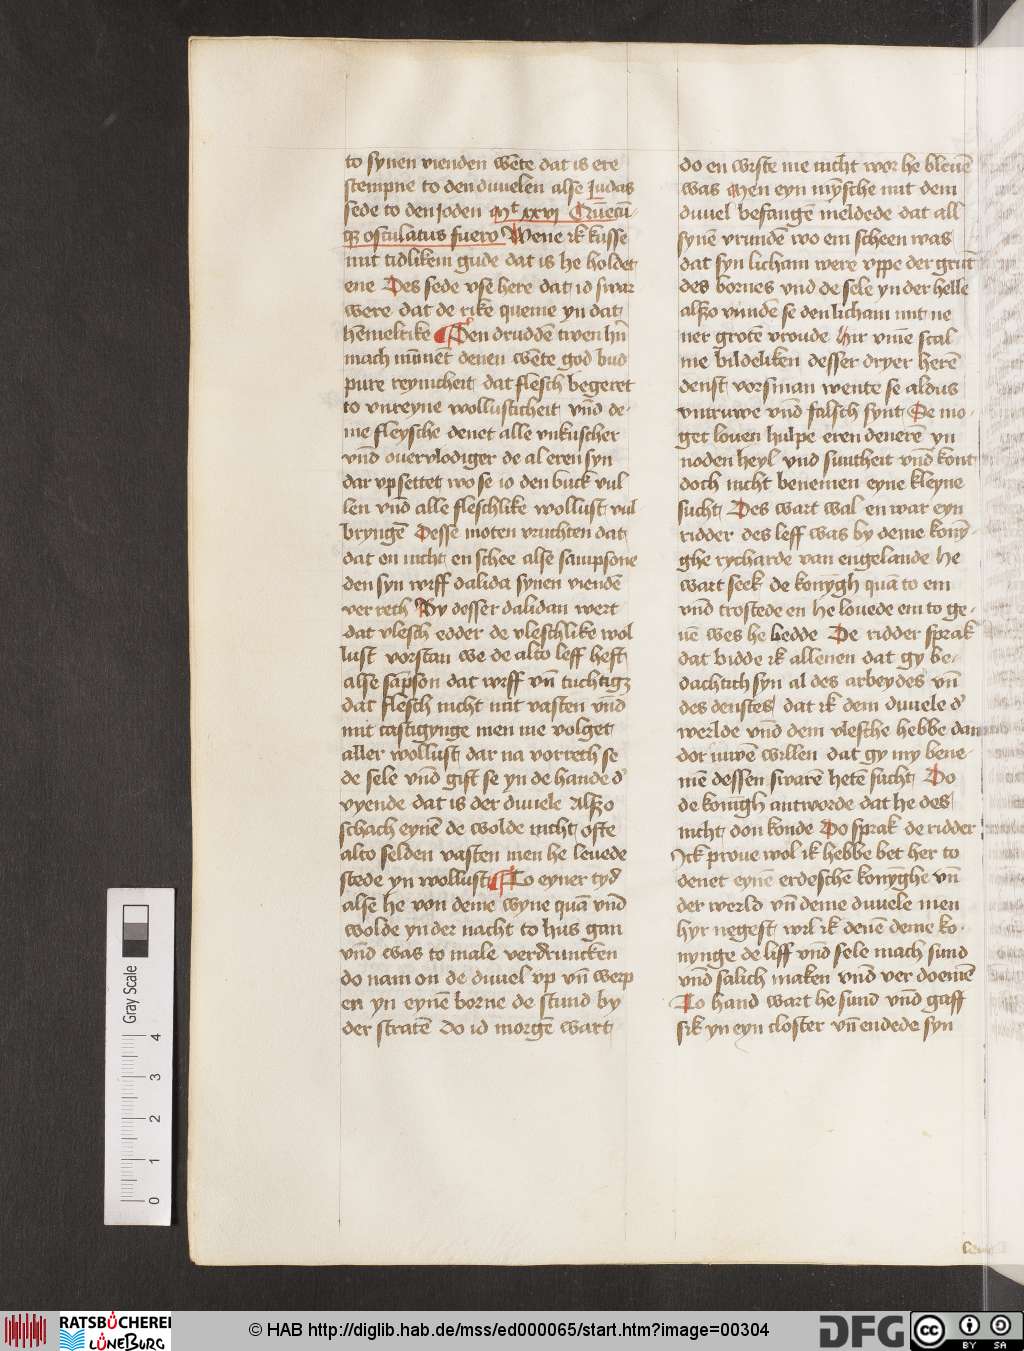 to synen vienden wēte dat is ere
stempne to den duuelen alse Judas
sede to den joden Mt xxvj Quēcū-
qȝ osculatus fuero Wene ik kusse
mit tidlikem gude dat is he holdet
ene Des sede vse here dat id swar
were dat de rike queme yn dat
hēmelrike Den drudden twen hn̄
mach nūmet denen wēte god bud
pure reynicheit dat flesch begeret
to vnreyne wollusticheit vn̄d de-
me fleysche denet alle vnkuscher
vnd ouervlodiger de al eren syn
dar vpsettet wo se io den buck vul
len vnd alle fleschlike wollust vul-
bryngē Desse moten vruchten dat
dat en nicht en schee alse sampsone
den syn wiff dalida synen viendē
ver reth By desser dalidan wert
dat vlesch edder de vleschlike wol
lust vorstan we de alto leff heft
alse sapson dat wiff vn̄ tuchtigȝ
dat flesch nicht mit vasten vn̄d
mit castigynge men me volget
aller wollust dar na vorreth se
de sele vnd gift se yn de hande d'
vyende dat is der duuele Alsȝo
schach eynē de wolde nicht ofte
alto selden vasten men he leuede
stede yn wollust To eyner tyd
alse he von deme wyne quā vnd
wolde yn der nacht to hus gan
vnd was to male verdruncken
do nam on de duuel vp vn̄ werp
en yn eynē borne de stund by
der stratē Do id morgē wart
do en wiste me nicht wor he bleuē
was Men eyn mȳsche mit dem
duuel befangē meldede dat all
synē vrundē wo em scheen was
dat syn licham were vppe der grūt
des bornes vnd de sele yn der helle
alsȝo vundē se den licham mit ne
ner grotē vroude Hir vm̄e scal
me bildeliken desser dryer herē
denst vorsman wente se aldus
vntruwe vn̄d falsch synt De mo-
get louen hulpe eren denerē yn
noden heyl vnd suntheit vn̄d kont
doch nicht benemen eyne kleyne
sucht Des wart wal en war eyn
ridder des leff was by deme konȳ-
ghe rycharde van engelande He
wart seek de konȳgh quā to em
vn̄d trostede en he louede em to ge-
uē wes he bedde De ridder sprak
dat bidde ik allenen dat gy be-
dachtich syn al des arbeydes vn̄
des denstes dat ik dem duuele d'
werlde vn̄d dem vlesche hebbe dan
dor iuwē willen dat gy my bene-
mē dessen swarē hetē sucht Do
de konigh antworde dat he des
nicht don konde Do sprak de ridder
Ick proue wol ik hebbe bet her to
denet eynē erdeschē konyghe vn̄
der werld vn̄ deme duuele men
hyr negest wil ik denē deme ko-
nynge de liff vn̄d sele mach sund
vn̄d salich maken vnd ver doemē
To hand wart he sund vn̄d gaff
sik yn eyn closter vn̄ endede syn
Gray Scale
0 1 2 3 4
RATSBÜCHEREI LÜNEBURG
© HAB http://diglib.hab.de/mss/ed000065/start.htm?image=00304
DFG
cc
BY SA